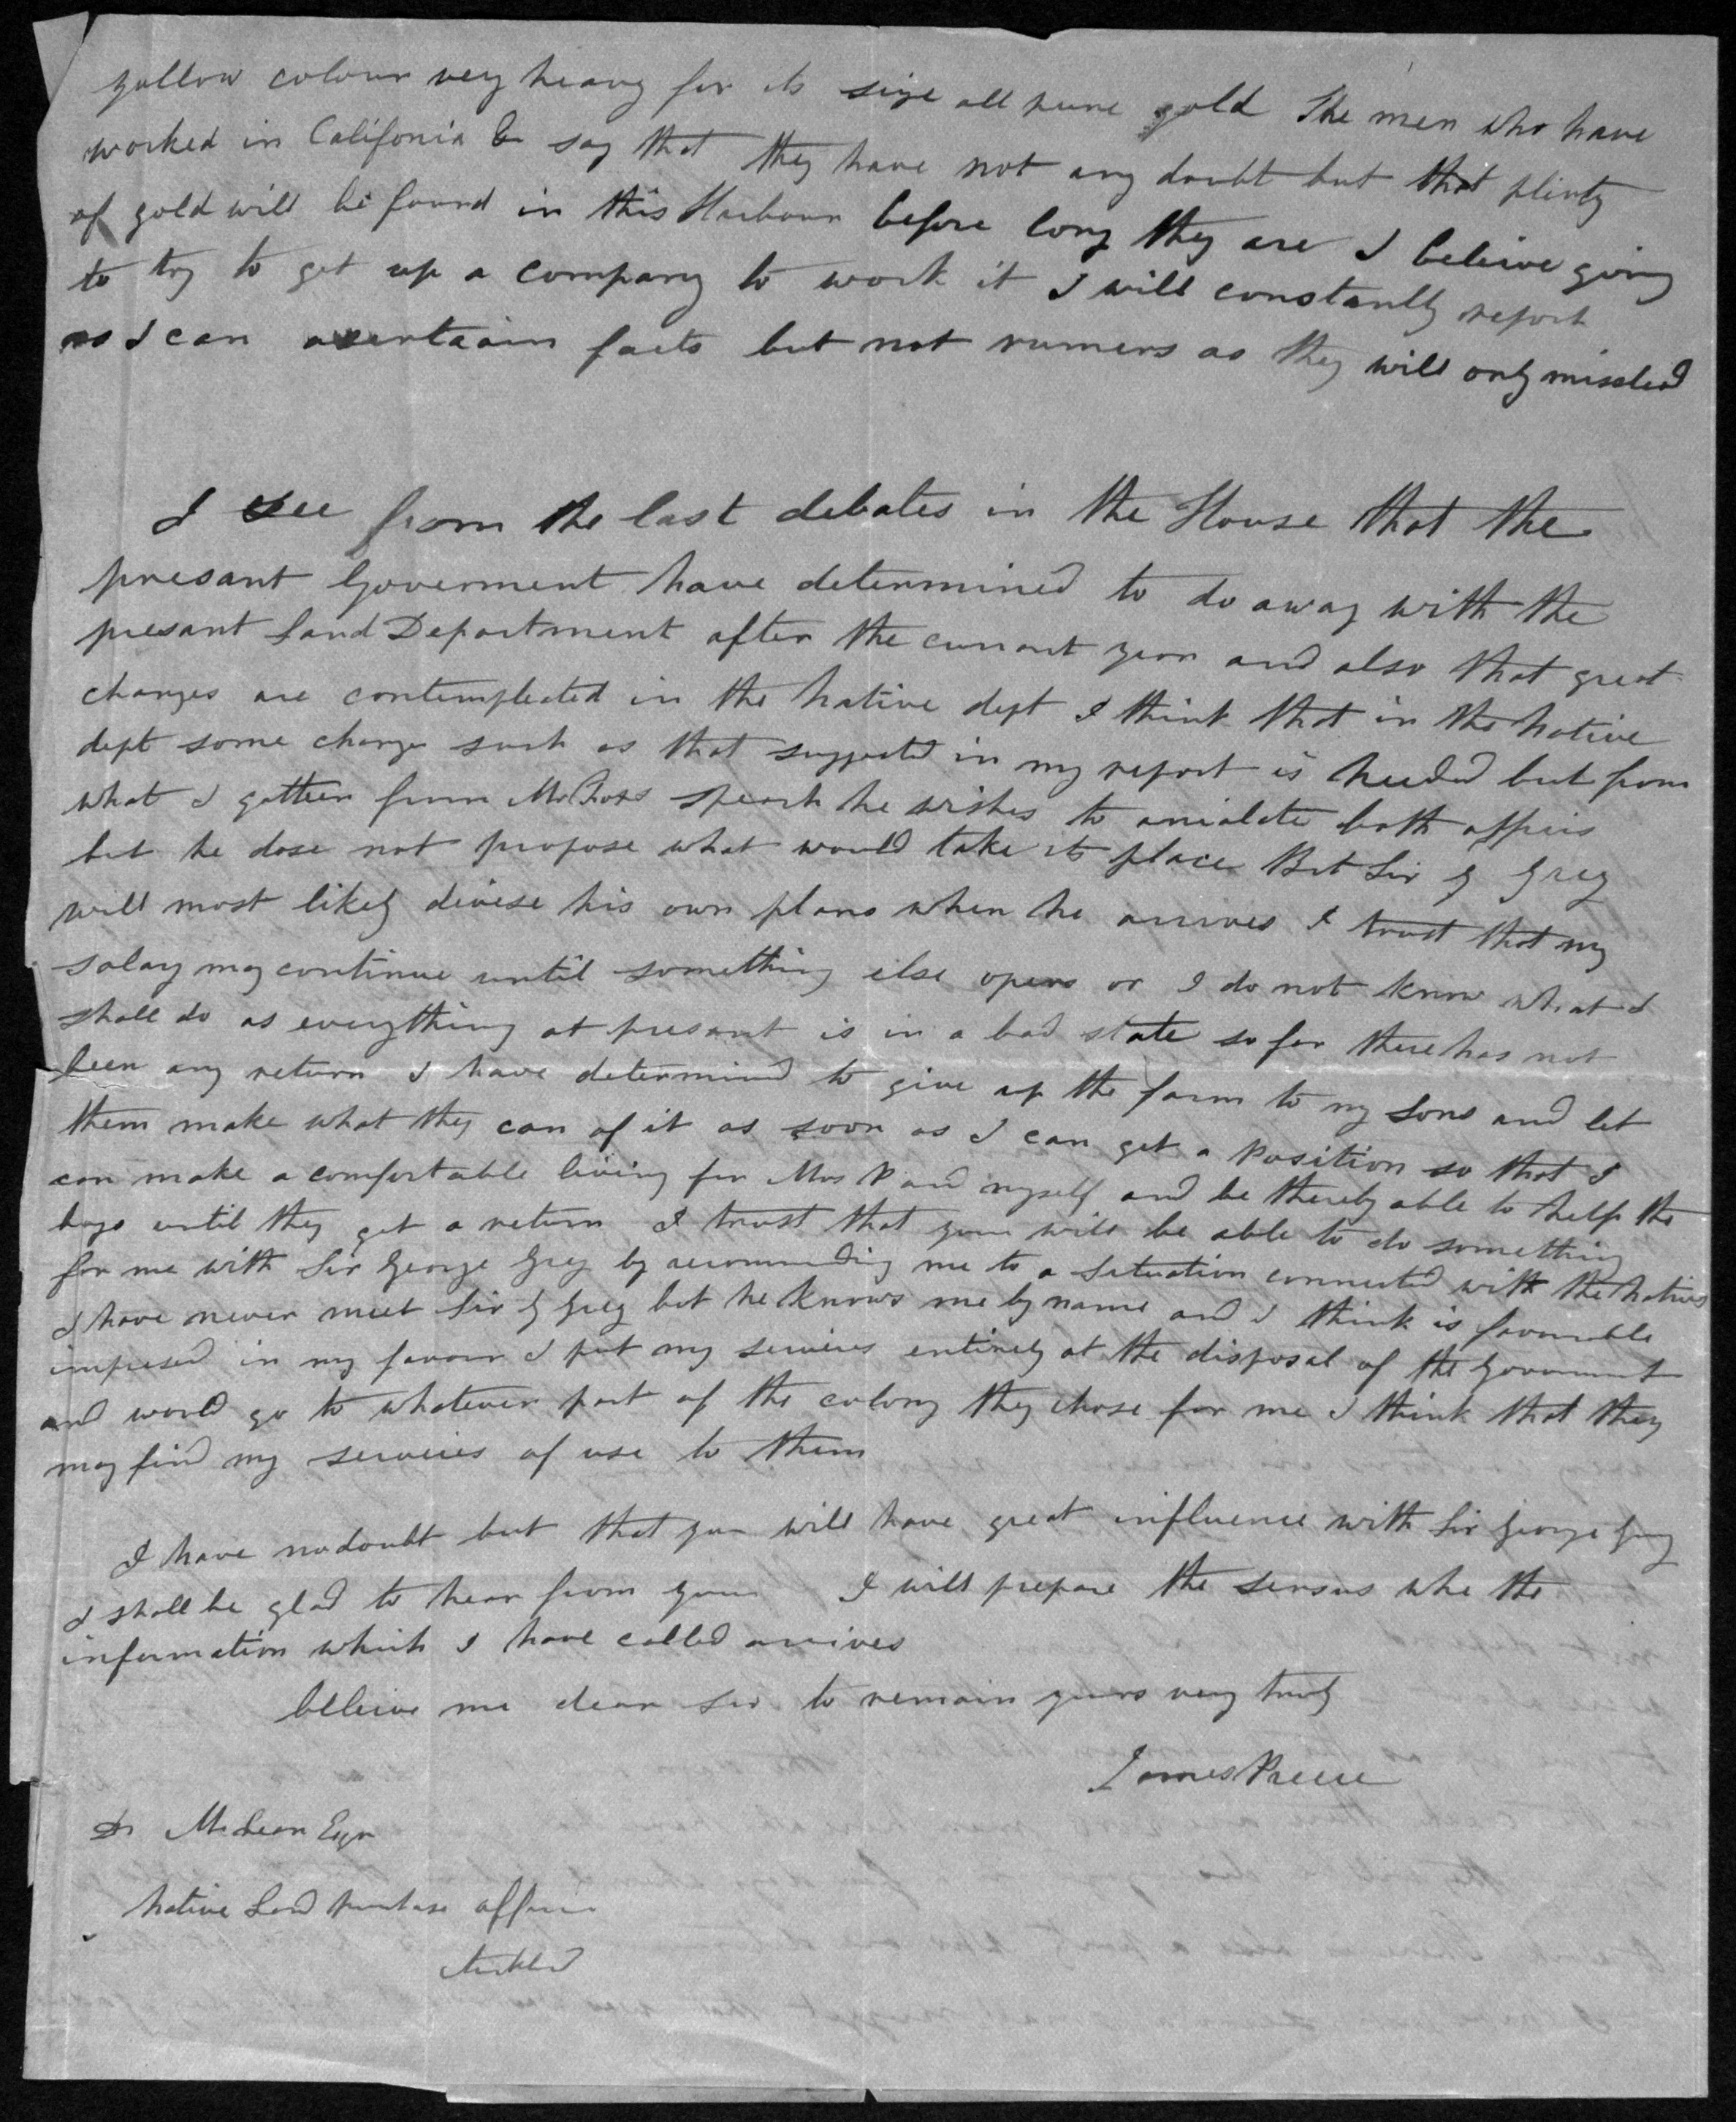 yollow colour very heavy for its size all pure gold The men who have
worked in Califonia & say that they have not any doubt but that plenty
of gold will be found in this Harbour before long they are I beleive going
to try to get up a company to work it I will constantly report
as I can acertain facts but not rumers as they will only mislead
I see from the last debates in the House that the
presant Goverment have determined to do away with the
presant Land Department after the currant year and also that great
changes are contemplated in the Native dept I think that in the Native
dept some change such as that suggested in my report is needed but from
what I gather from Mr speach he wishes to anialate both offices
but he dose not propose what would take its place But Sir G Grey
will most likely divise his own plans when he arrives I trust that my
salary may continue until something else opens or I do not know what I
shall do as everything at presant is in a bad state so far there has not
been any return I have determined to give up the farm to my Sons and let
them make what they can of it as soon as I can get a Position so that I
can make a comfortable living for Mrs P and myself and be thereby able to help the
boys until they get a return I trust that you will be able to do something
for me with Sir George Grey by recommending me to a Situation connected with the Natives
I have never meet Sir G Grey but he knows me by name and I think is favourable
impresed in my favour I put my services entirely at the disposal of the Goverment
and would go to whatever part of the colony they chose for me I think that they
may find my services of use to them
I have no doubt but that you will have great influence with Sir George Grey
I shall be glad to hear from you I will prepare the sensus whe the
information which I have called arrives
beleive me dear Sir to remain yours very truly
James Preece
D McLean Esqr
Native Land Purchase Office
Auckland